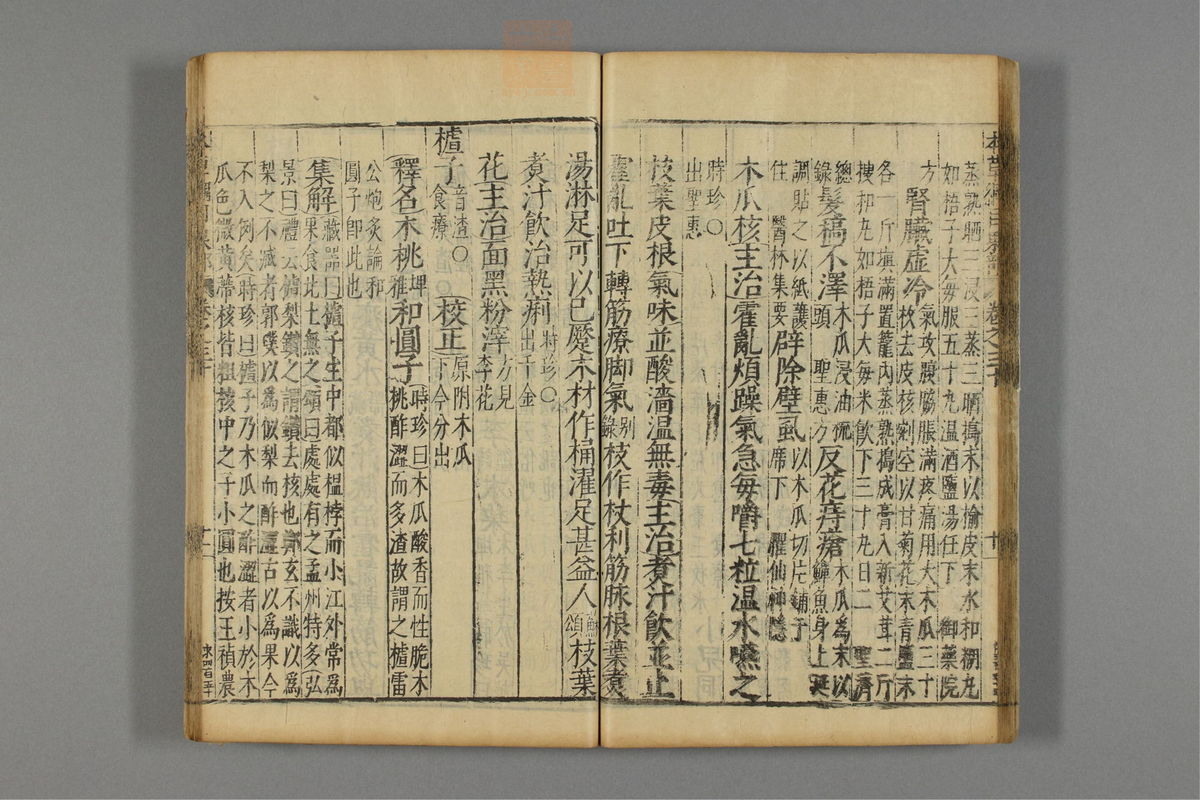 蒸熟晒三浸三蒸三晒搗末以榆皮末水和糊丸
如梧子大每服五十丸温酒鹽湯任下 御藥院
方 腎臟虛冷 氣攻腹脇脹滿疼痛用大木瓜三十
枚去皮核剜空以甘菊花末青鹽末
各一斤填滿置籠內蒸熟搗成膏入新艾茸二斤
捜和丸如梧子大每米飲下三十丸日二 聖濟
總 髮槁不澤 木瓜浸油梳頭 聖惠方 反花痔瘡 木瓜為末以
錄 鱓魚身上涎
調貼之以紙護
住 醫林集要 辟除壁虱 以木瓜切片鋪于席下 臞仙神隱
木瓜核主治霍亂煩躁氣急每嚼七粒温水嚥之
時珍○
出聖惠
枝葉皮根氣味並酸濇温無毒主治煮汁飲並止
霍亂吐下轉筋療脚氣 別錄 枝作杖利筋脉根葉煮
湯淋足可以已蹷木材作桶濯足甚益人 蘇頌 枝葉
煮汁飲治熱痢 時珍○出千金
花主治面黑粉滓 方見李花
樝子 音渣○食療 校正 原附木瓜下今分出
釋名木桃 埤雅 和圓子 時珍曰木瓜酸香而性脆木
桃酢澀而多渣故謂之樝雷
公炮炙論和
圓子即此也
集解 藏器曰樝子生中都似榲桲而小江外常為
果食此土無之頌曰處處有之孟州特多弘
景曰禮云樝梨鑽之謂鑽去核也鄭玄不識以為
梨之不臧者郭璞以為似梨而酢澀古以為果今
不入例矣時珍曰樝子乃木瓜之酢澀者小於木
瓜色微黃蒂核皆粗核中之子小圓也按王禎農